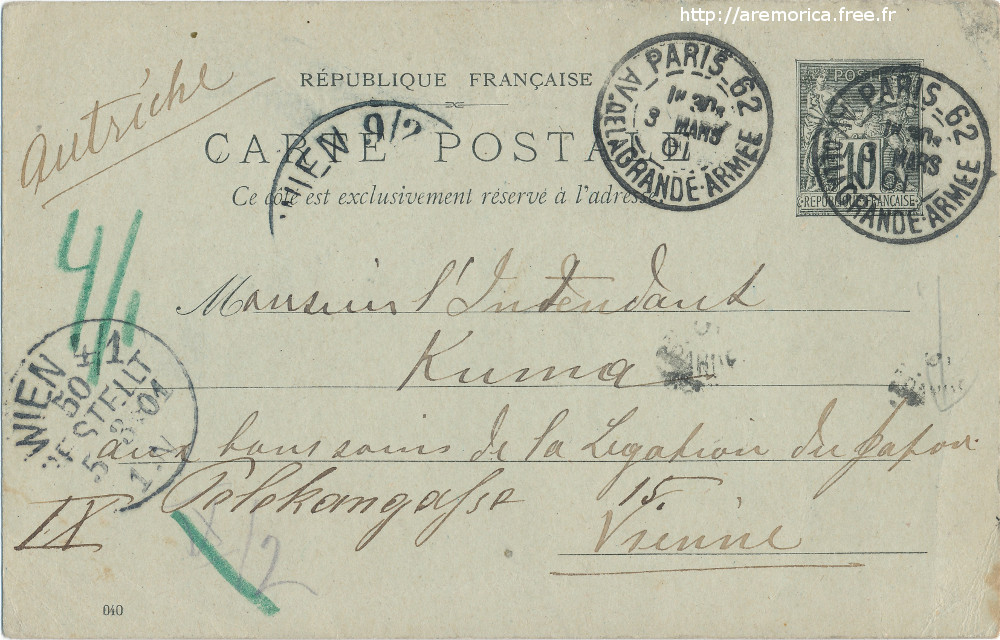 http://aremorica.free.fr
RÉPUBLIQUE FRANÇAISE
Autriche
CARTE POSTALE
Ce côté est exclusivement réservé à l'adresse
PARIS_62
3 MARS
01
AV. DE LA GRANDE-ARMÉE
POSTES
10
REPUBLIQUE FRANÇAISE
PARIS_62
3 MARS
01
GRANDE-ARMÉE
WIEN 9/2
4/1
Monsieur l'Intendant
Kuma
aux bons soins de la Legation du Japon
IX Pelekangasse 15
Vienne
WIEN 4/1
50
BESTELLT
5 3 01
1.N
/2
040